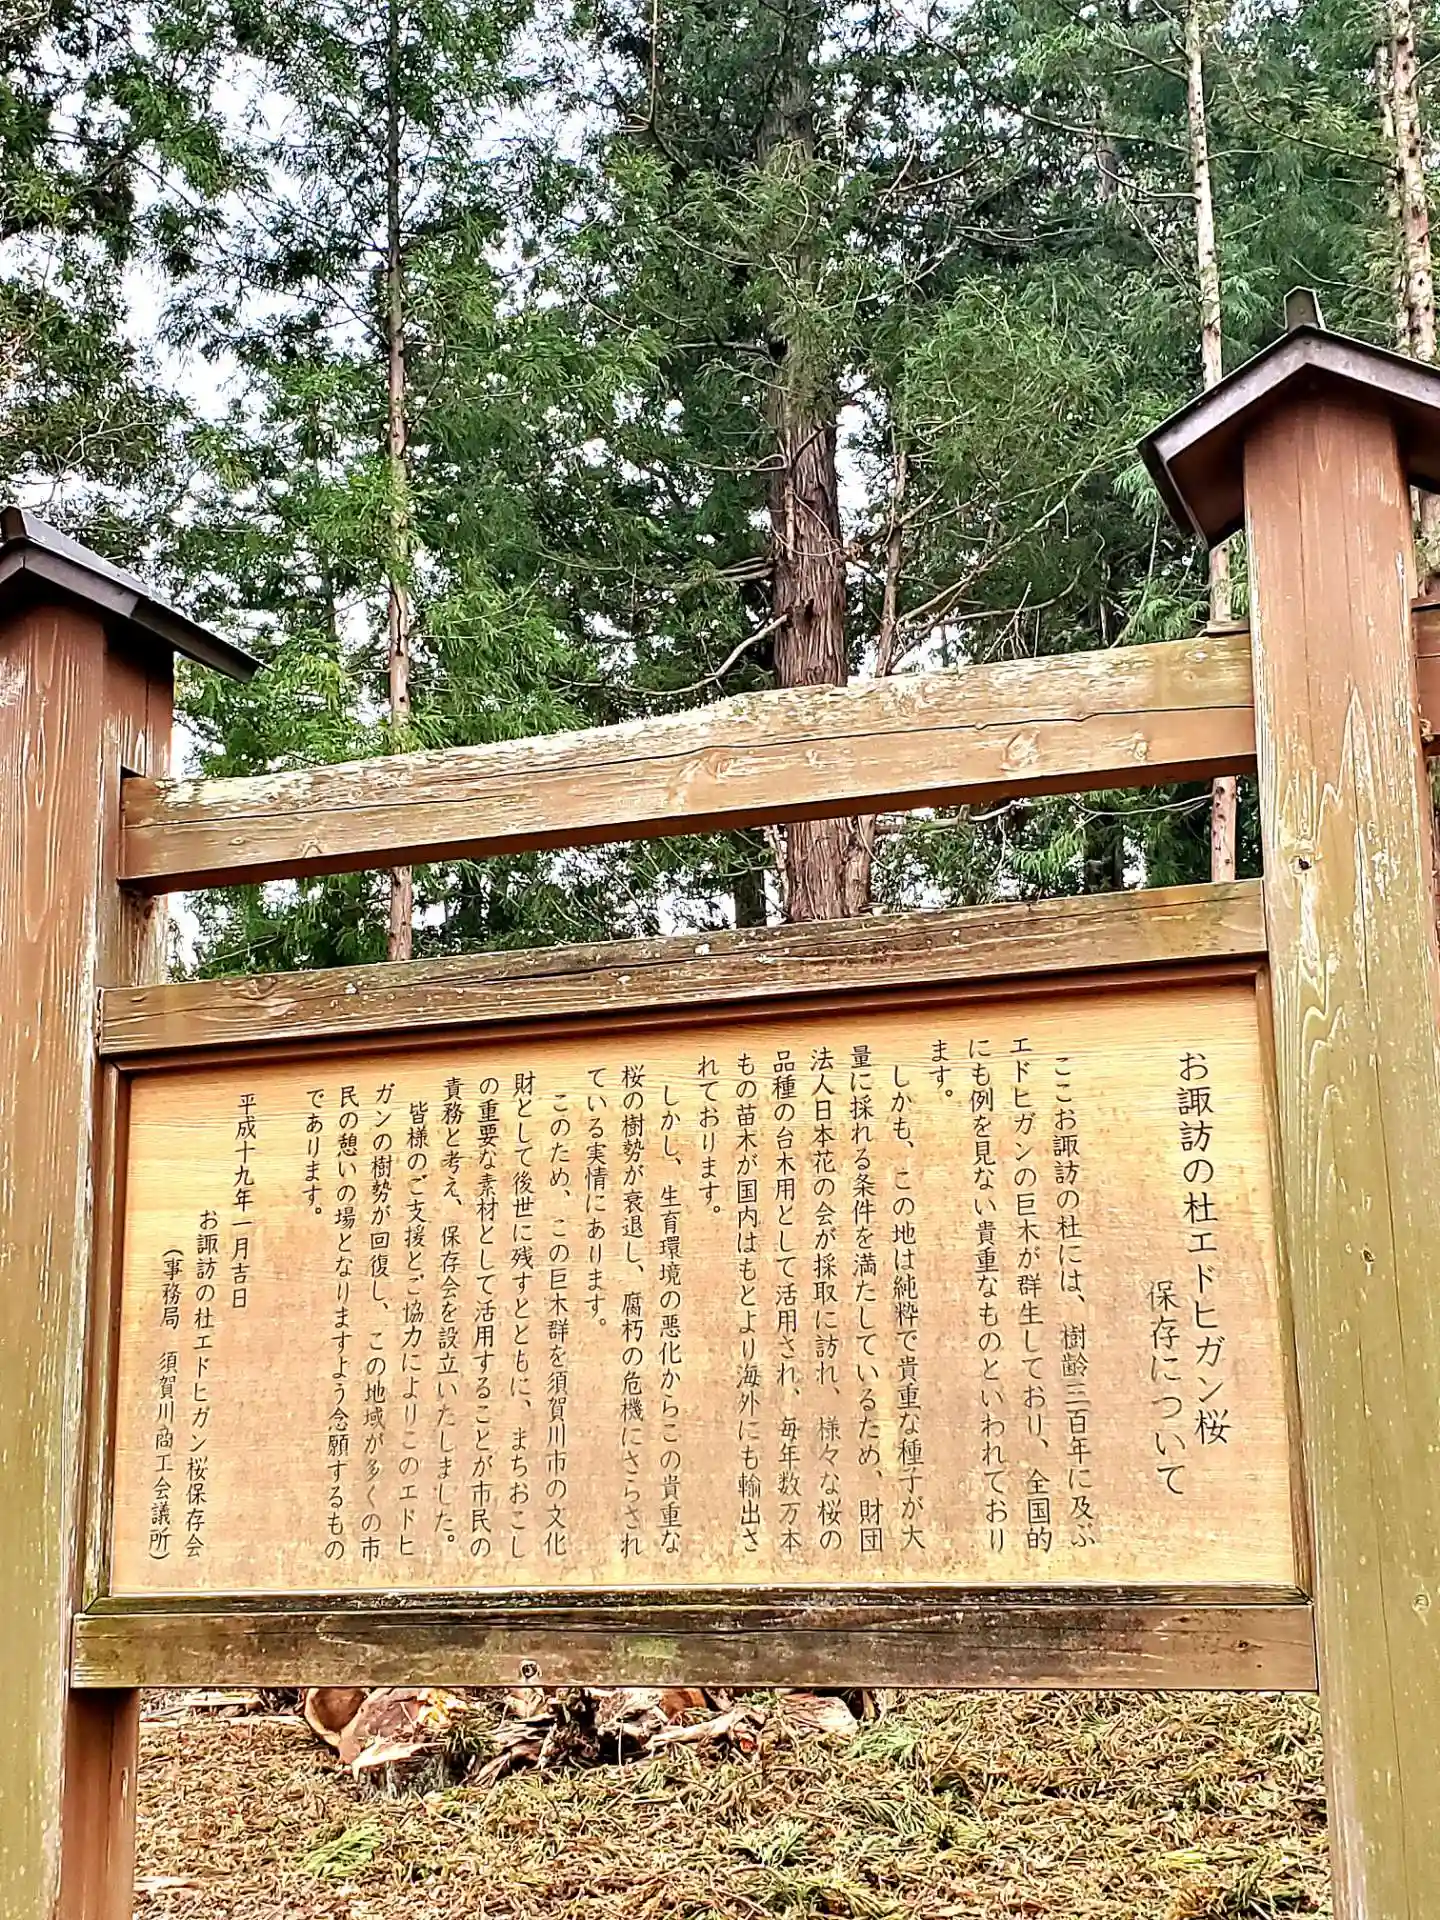 お諏訪の杜エドヒガン桜
保存について
ここお諏訪の杜には、樹齢三百年に及ぶ
エドヒガンの巨木が群生しており、全国的
にも例を見ない貴重なものといわれており
ます。
しかも、この地は純粋で貴重な種子が大
量に採れる条件を満たしているため、財団
法人日本花の会が採取に訪れ、様々な桜の
品種の台木用として活用され、毎年数万本
もの苗木が国内はもとより海外にも輸出さ
れております。
しかし、生育環境の悪化からこの貴重な
桜の樹勢が衰退し、腐朽の危機にさらされ
ている実情にあります。
このため、この巨木群を須賀川市の文化
財として後世に残すとともに、まちおこし
の重要な素材として活用することが市民の
責務と考え、保存会を設立いたしました。
皆様のご支援とご協力によりこのエドヒ
ガンの樹勢が回復し、この地域が多くの市
民の憩いの場となりますよう念願するもの
であります。
平成十九年一月吉日
お諏訪の杜エドヒガン桜保存会
(事務局 須賀川商工会議所)